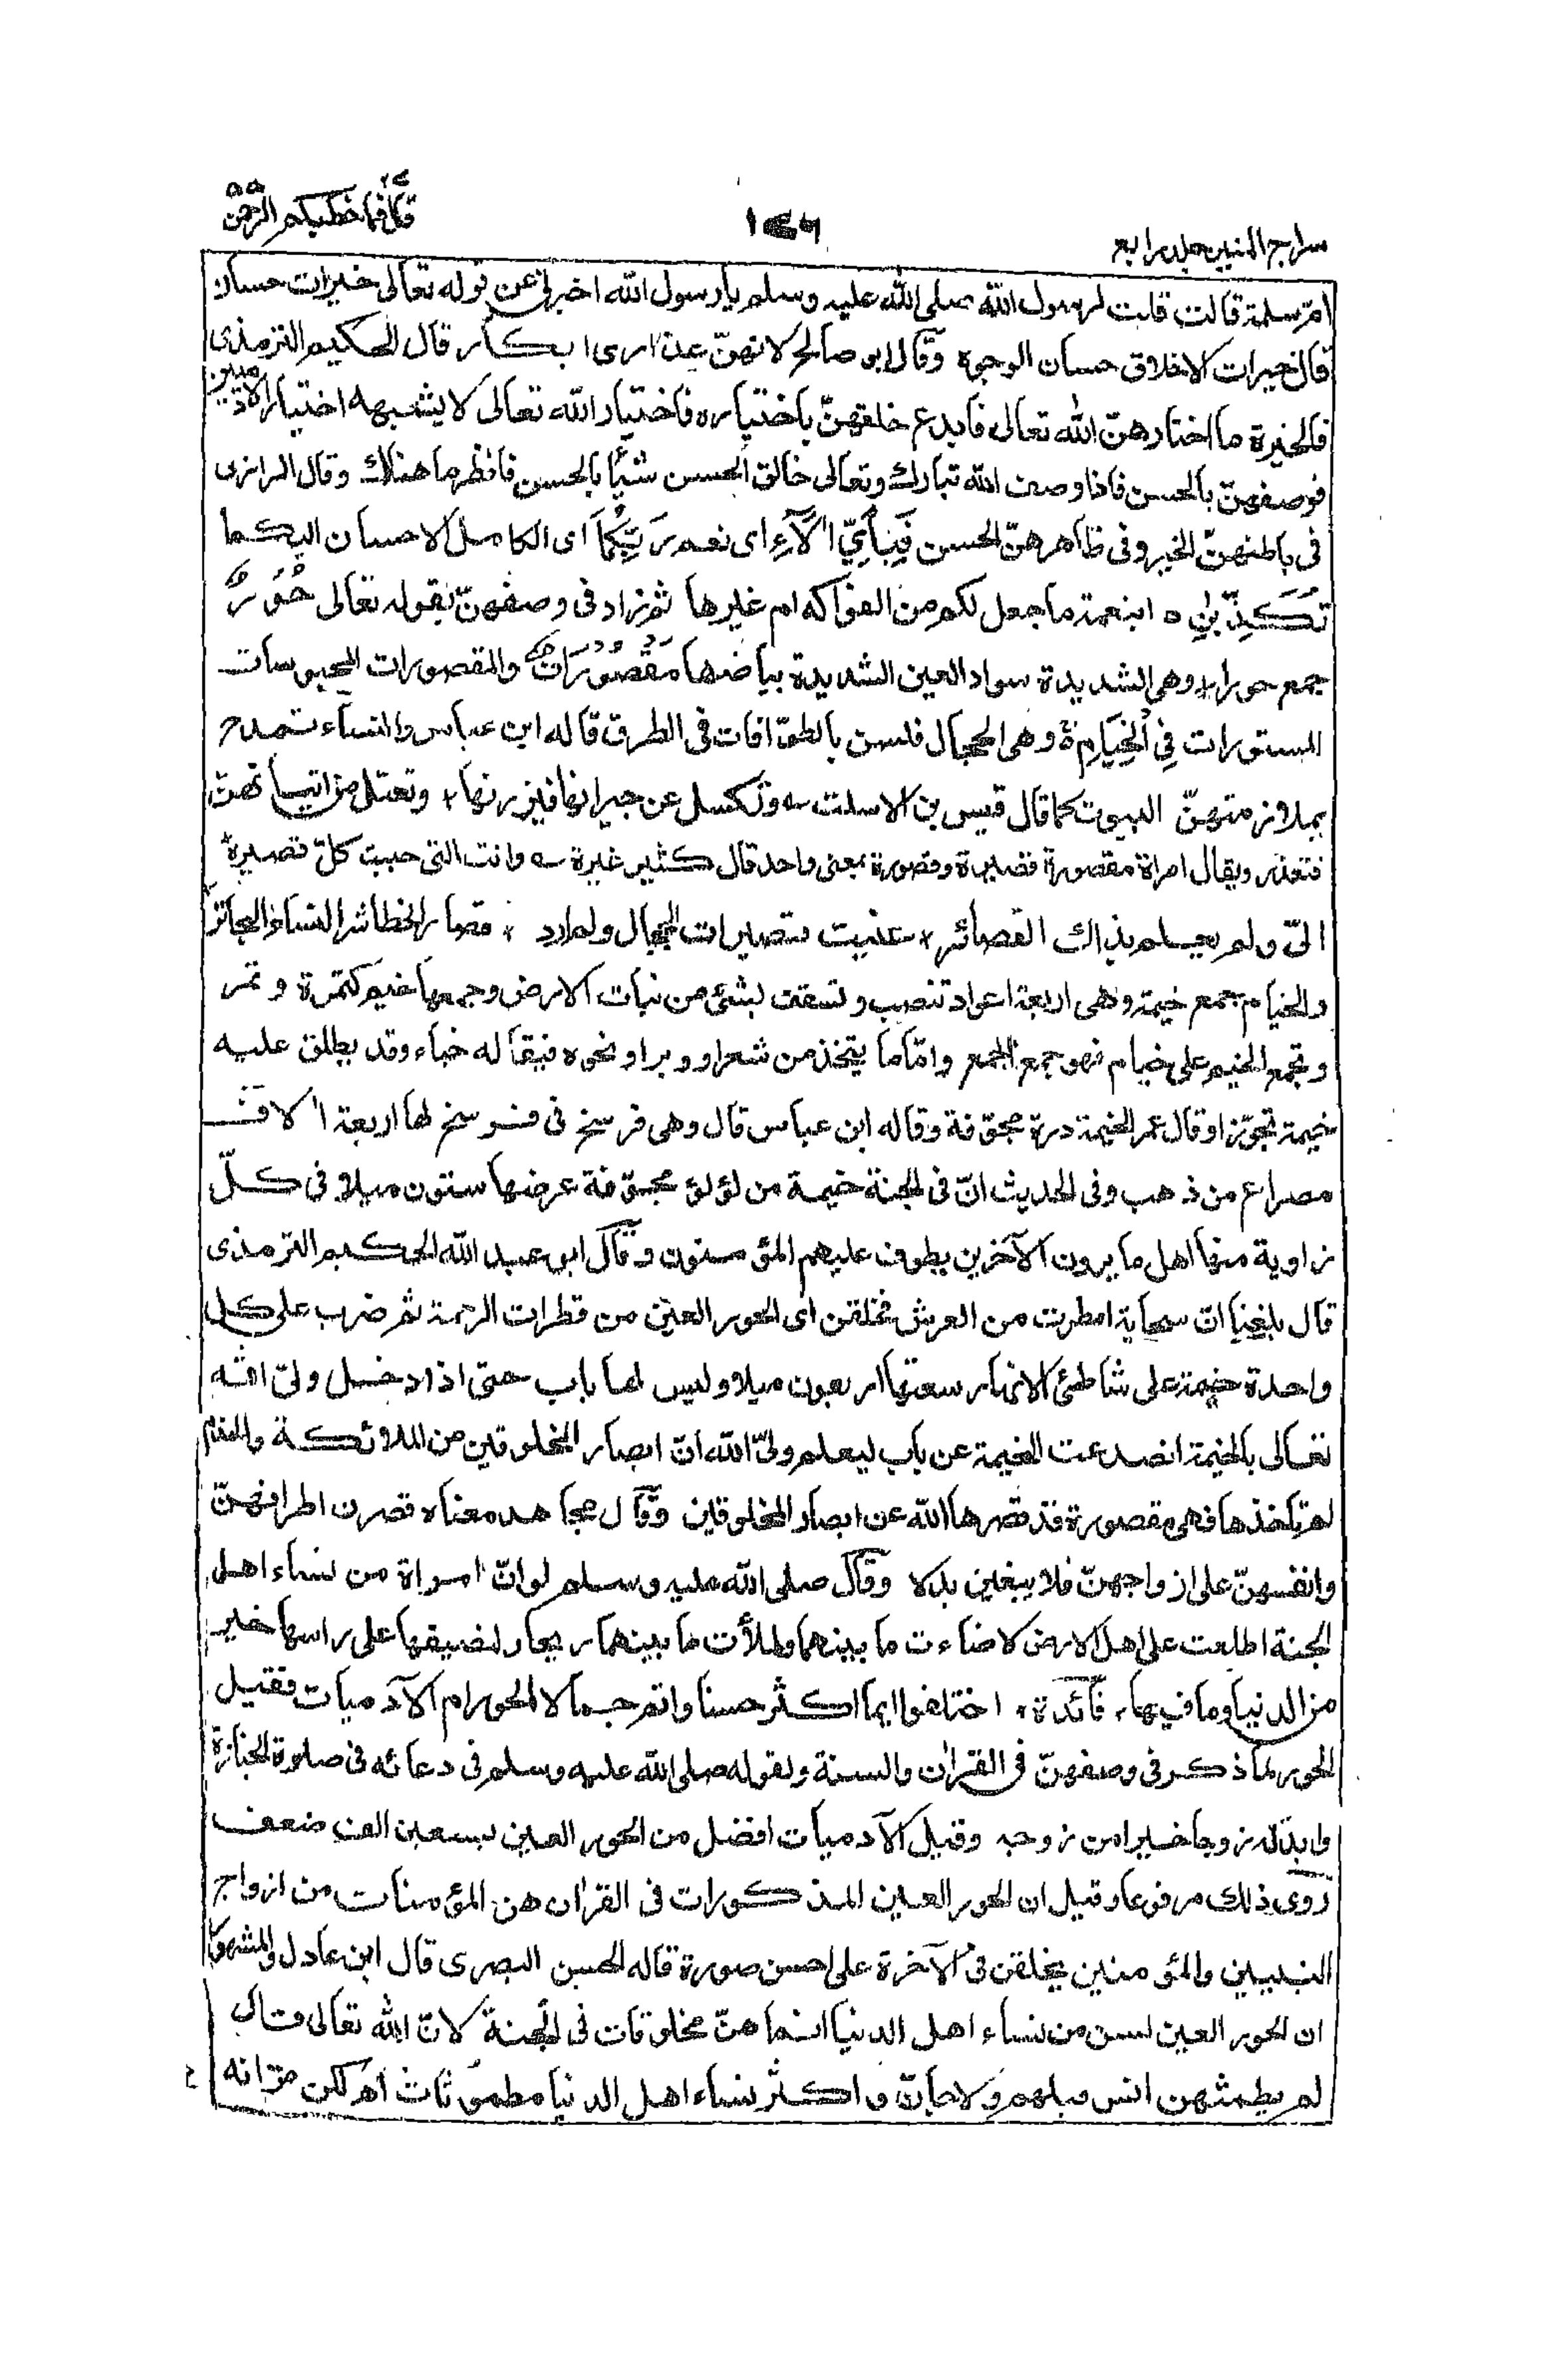 سراج المنير جلد رابع
١٤٦
قال فما خطبكم الرحمن ٥٥
ام سلمة قالت قلت لرسول الله صلى الله عليه وسلم يا رسول الله اخبرنى عن قوله تعالى خيرات حسان
قال خيرات الاخلاق حسان الوجوه وقال ابو صالح لانهنّ عذارى ابكار قال الحكيم الترمذى
فالخيرة ما اختارهنّ الله تعالى فابدع خلقهنّ باختياره فاختيار الله تعالى لا يشبهه اختيار الآدميين
فوصفهنّ بالحسن فاذا وصف الله تبارك وتعالى خالق الحسن شيئًا بالحسن فانظر ما هنالك وقال الرازى
فى باطنهنّ الخير وفى ظاهرهنّ الحسن فَبِأَيِّ اٰلَآءِ اى نعم رَبِّكُمَا اى الكامل الاحسان اليكما
تُكَذِّبٰنِ ٥ ابنعمة ما جعل لكم من الفواكه ام غيرها ثم زاد فى وصفهنّ بقوله تعالى حُوْرٌ
جمع حوراء وهى الشديدة سواد العين الشديدة بياضها مَقْصُوْرَاتٌ والمقصورات المحبوسات
المستورات فِي الْخِيَامِ ۚ وهى الحجال فلسن بالطوّافات فى الطرق قاله ابن عباس والنساء تمدح
بملازمتهنّ البيوت كما قال قيس بن الاسلت ؎ وتكسل عن جيرانها فيزرنها ٭ وتعتل من اتيانهنّ
فتعذر ويقال امراة مقصورة قصيرة وقصورة بمعنى واحد قال كثير عزة ؎ وانت التى حببت كلّ قصيرة
الىّ ولم يعلم بذاك القصائر ٭ عنيت قصيرات الحجال ولم ارد ٭ قصار الخطا شر النساء البحاتر
والخيام جمع خيمة وهى اربعة اعواد تنصب وتسقف بشئ من نبات الارض وجمعها خيم كتمرة وتمر
وتجمع الخيم على خيام فهو جمع الجمع وامّا ما يتخذ من شعر او وبر او نحوه فيقال له خباء وقد يطلق عليه
خيمة تجوّزا وقال عمر الخيمة درة مجوّفة وقاله ابن عباس قال وهى فرسخ فى فرسخ لها اربعة اٰلاف
مصراع من ذهب وفى الحديث انّ فى الجنة خيمة من لؤلؤ مجوّفة عرضها ستون ميلا فى كلّ
زاوية منها اهل ما يرون الآخرين يطوف عليهم المؤمنون وقال ابو عبد الله الحكيم الترمذى
قال بلغنا انّ سحابة امطرت من العرش فخلقن اى الحور العين من قطرات الرحمة ثم ضرب على كل
واحدة خيمة على شاطئ الانهار سعتها اربعون ميلا وليس لها باب حتى اذا دخل ولىّ الله
تعالى بالخيمة انصدعت الخيمة عن باب ليعلم ولىّ الله انّ ابصار المخلوقين من الملائكة والخدّام
لم تاخذها فهى مقصورة قد قصرها الله عن ابصار المخلوقين وقال مجاهد معناه قصرن اطرافهنّ
وانفسهنّ على ازواجهنّ فلا يبغين بدلا وقال صلى الله عليه وسلم لو انّ امراة من نساء اهل
الجنة اطلعت على اهل الارض لاضاءت ما بينهما ولملأت ما بينهما ريحا ولنصيفها على راسها خير
من الدنيا وما فيها ٭ فائدة ٭ اختلفوا ايما اكثر حسنا واتم جمالا الحور ام الآدميات فقيل
الحور لما ذكر فى وصفهنّ فى القرآن والسنة ولقوله صلى الله عليه وسلم فى دعائه فى صلوة الجنازة
وابدله زوجا خيرا من زوجه وقيل الآدميات افضل من الحور العين بسبعين الف ضعف
روى ذلك مرفوعا وقيل ان الحور العين المذكورات فى القرآن هن المؤمنات من ازواج
النبيين والمؤمنين يخلقن فى الآخرة على احسن صورة قاله الحسن البصرى قال ابن عادل والمشهور
ان الحور العين لسن من نساء اهل الدنيا انما هنّ مخلوقات فى الجنة لانّ الله تعالى قال
لم يطمثهن انس قبلهم ولا جانّ واكثر نساء اهل الدنيا مطموثات اهـ لكن مرّ انه